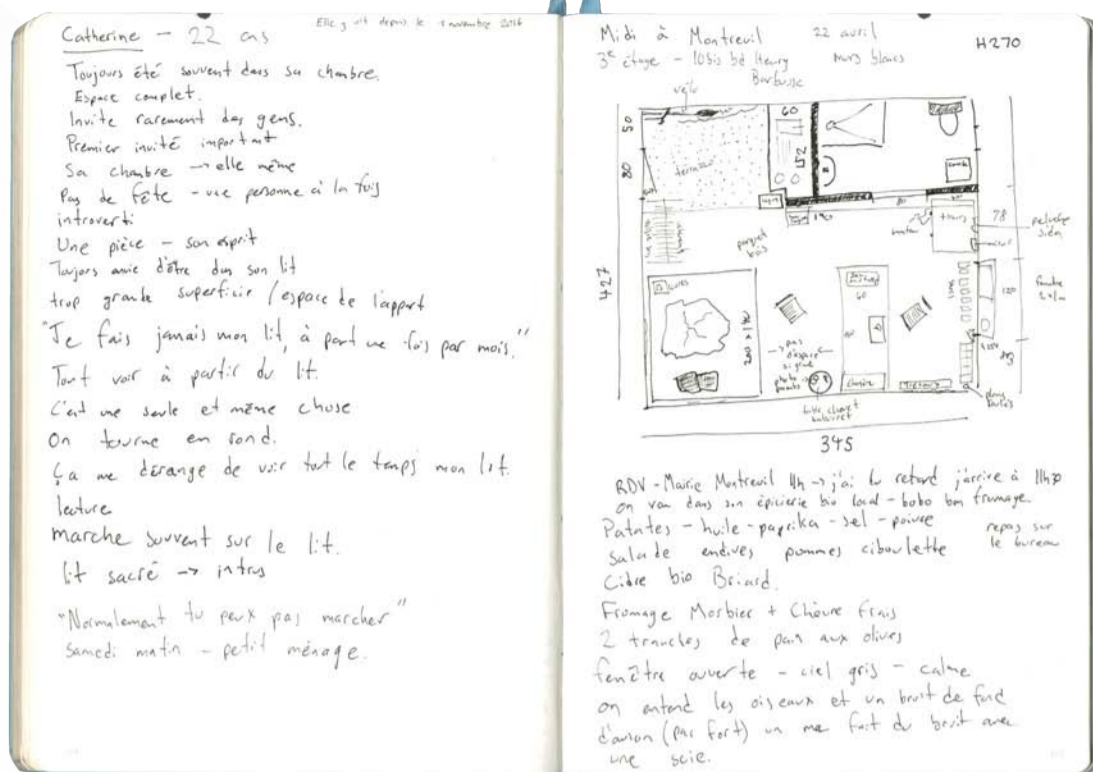 Catherine - 22 ans
Elle y vit depuis le novembre 2016
Toujours été souvent dans sa chambre.
Espace complet.
Invite rarement des gens.
Premier invité important
Sa chambre → elle même
Pas de fête - une personne à la fois
introverti
Une pièce - son esprit
Toujors envie d'être dans son lit
trop grande superficie / espace de l'appart
"Je fais jamais mon lit, à part une fois par mois."
Tout voir à partir du lit.
C'est une seule et même chose
On tourne en rond.
Ça me dérange de voir tout le temps mon lit.
lecture
marche souvent sur le lit.
lit sacré → intrus
"Normalement tu peux pas marcher"
Samedi matin - petit ménage.
Midi à Montreuil 22 avril
H270
3e étage - 10bis bd Henry Barbusse
murs blancs
vélo
50
60
80
152
terrasse
80
78
parquet bois
427
60
120
200 x 140
pas d'espace
345
RDV - Mairie Montreuil 11h → j'ai du retard j'arrive à 11h30
on va dans son épicierie bio local - bobo bon fromage.
Patates - huile - paprika - sel - poivre
repas sur le bureau
salade endives pommes ciboulette
Cidre bio Briard.
Fromage Morbier + Chèvre Frais
2 tranches de pain aux olives
fenêtre ouverte - ciel gris - calme
on entend les oiseaux et un bruit de fond
d'avion (pas fort) un mec fait du bruit avec
une scie.